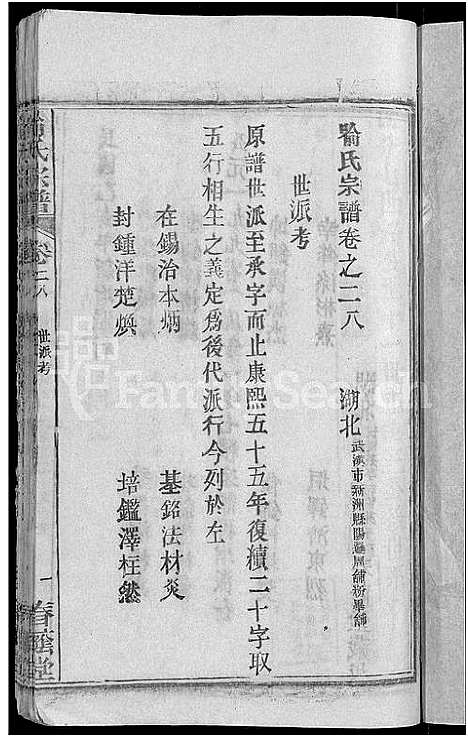 喻氏宗譜卷之二八 湖北 武漢市新洲縣陽邏
世派考
原譜世派至承字而止康熙五十五年復續二十字取
五行相生之義定為後代派行今列於左
在錫治本炳 基銘法材炎
封鍾洋楚煥 培鑑澤柱然
喻氏宗譜 卷之二八 世派考 一 春蔭堂
FamilySearch